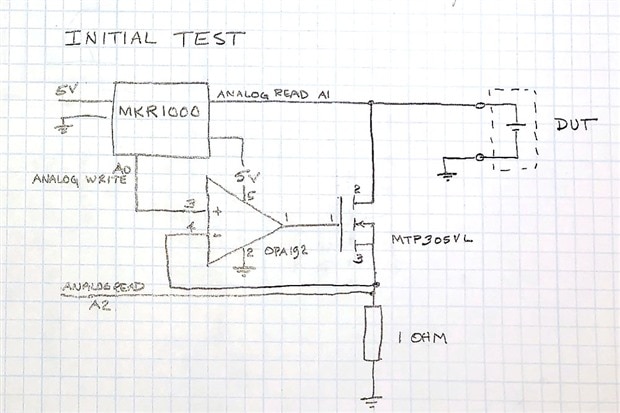 INITIAL TEST
5V
MKR1000
ANALOG READ A1
DUT
A0
ANALOG WRITE
5V
5
3
+
4
-
1
1
2
2
OPA192
3
MTP305VL
ANALOG READ
A2
1 OHM